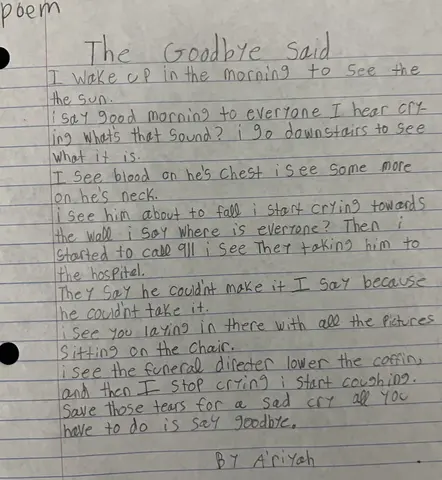 poem
The Goodbye Said
I wake up in the morning to see the
the sun.
i say good morning to everyone I hear cry-
ing what's that sound? i go downstairs to see
what it is.
I see blood on he's chest i see some more
on he's neck.
i see him about to fall i start crying towards
the wall i say where is everyone? Then i
started to call 911 i see They taking him to
the hospitel.
They say he could'nt make it I say because
he could'nt take it.
i see you laying in there with all the pictures
sitting on the chair.
i see the funeral directer lower the coffin,
and then I stop crying i start coughing.
Save those tears for a sad cry all you
have to do is say goodbye.
By A'riyah